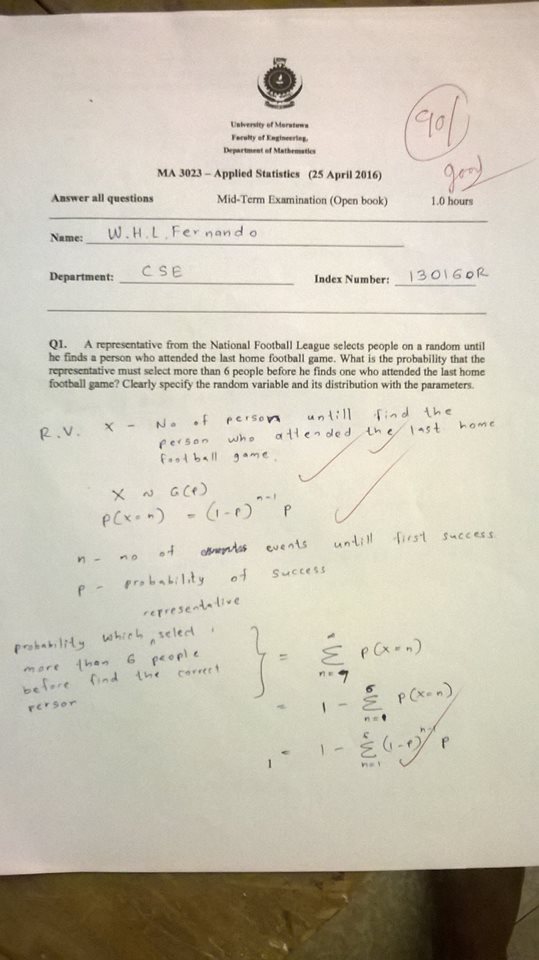 University of Moratuwa
Faculty of Engineering,
Department of Mathematics
90/
good
MA 3023 – Applied Statistics (25 April 2016)
Answer all questions Mid-Term Examination (Open book) 1.0 hours
Name: W.H.L. Fernando
Department: CSE Index Number: 130160R
Q1. A representative from the National Football League selects people on a random until
he finds a person who attended the last home football game. What is the probability that the
representative must select more than 6 people before he finds one who attended the last home
football game? Clearly specify the random variable and its distribution with the parameters.
R.V. X - No of person untill find the
person who attended the last home
football game.
X ~ G(p)
P(X=n) = (1-p)^{n-1} p
n - no of events untill first success
p - probability of success
representative
probability which select
more than 6 people
before find the correct
person
= ∑_{n=7}^{∞} P(X=n)
= 1 - ∑_{n=1}^{6} P(X=n)
= 1 - ∑_{n=1}^{6} (1-p)^{n-1} p